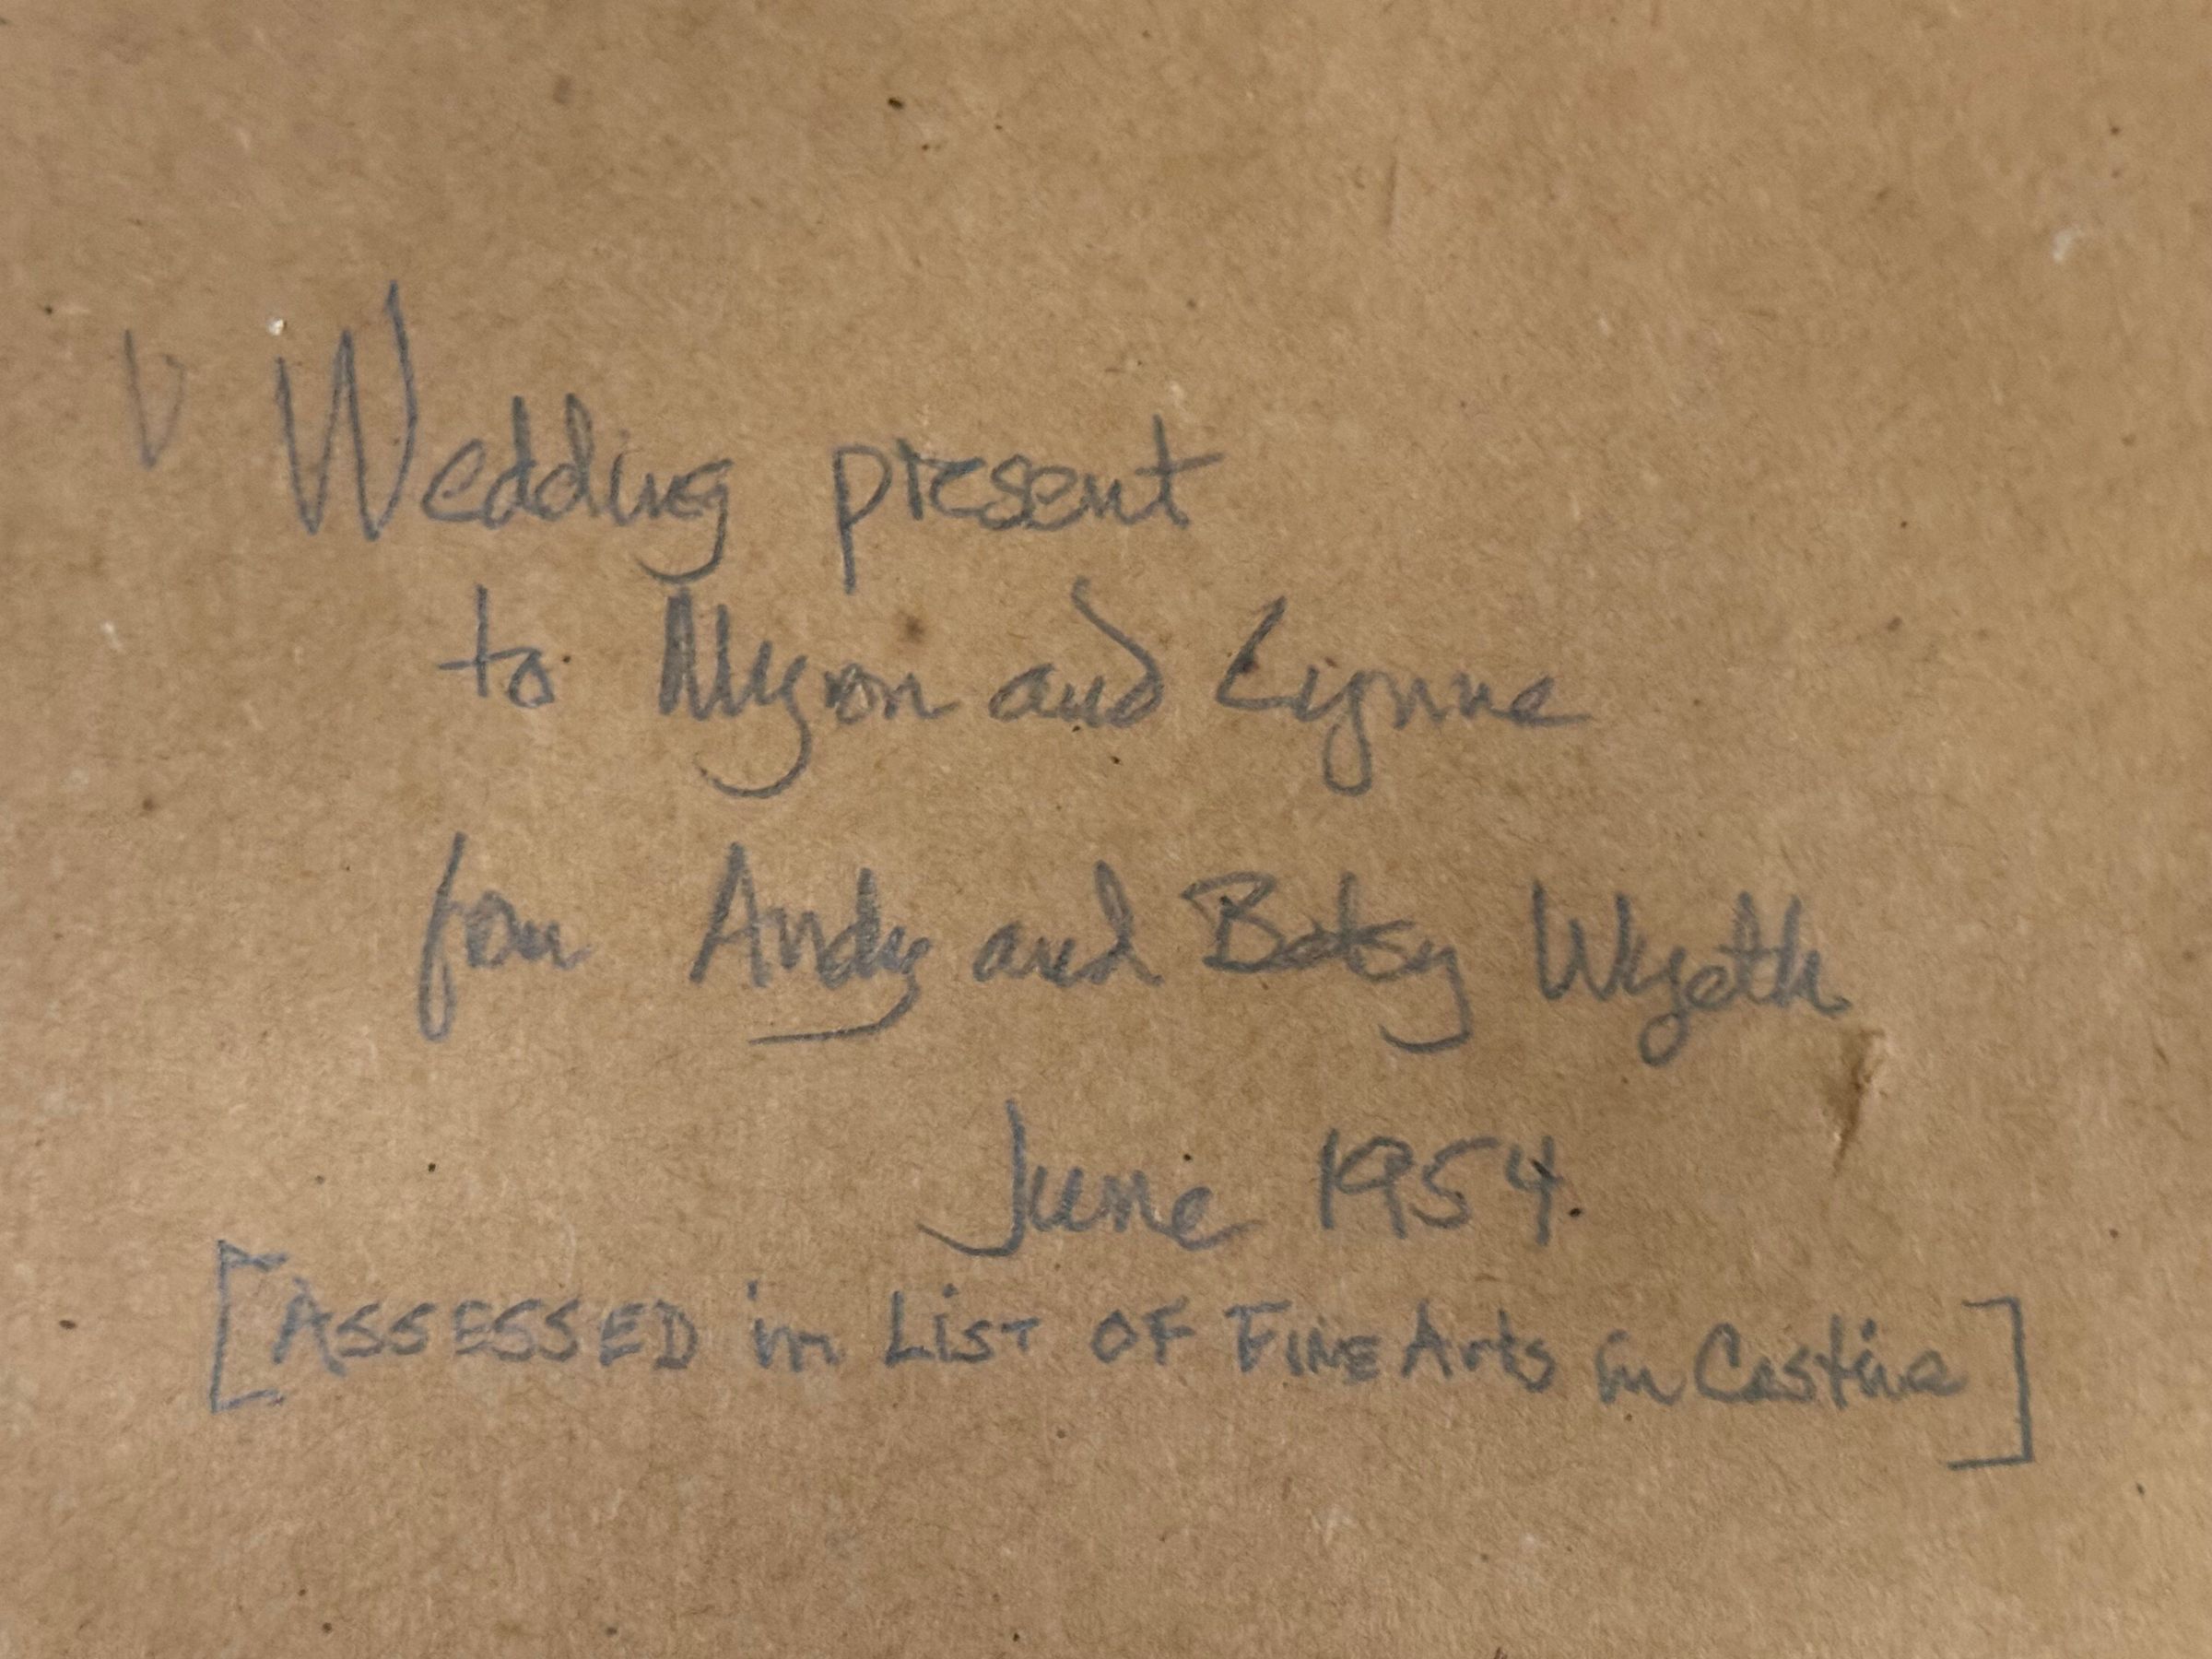 Wedding present
to Myron and Lynne
from Andy and Betsy Wyeth
June 1954.
[ASSESSED in LiST OF FINE Arts in Castine]